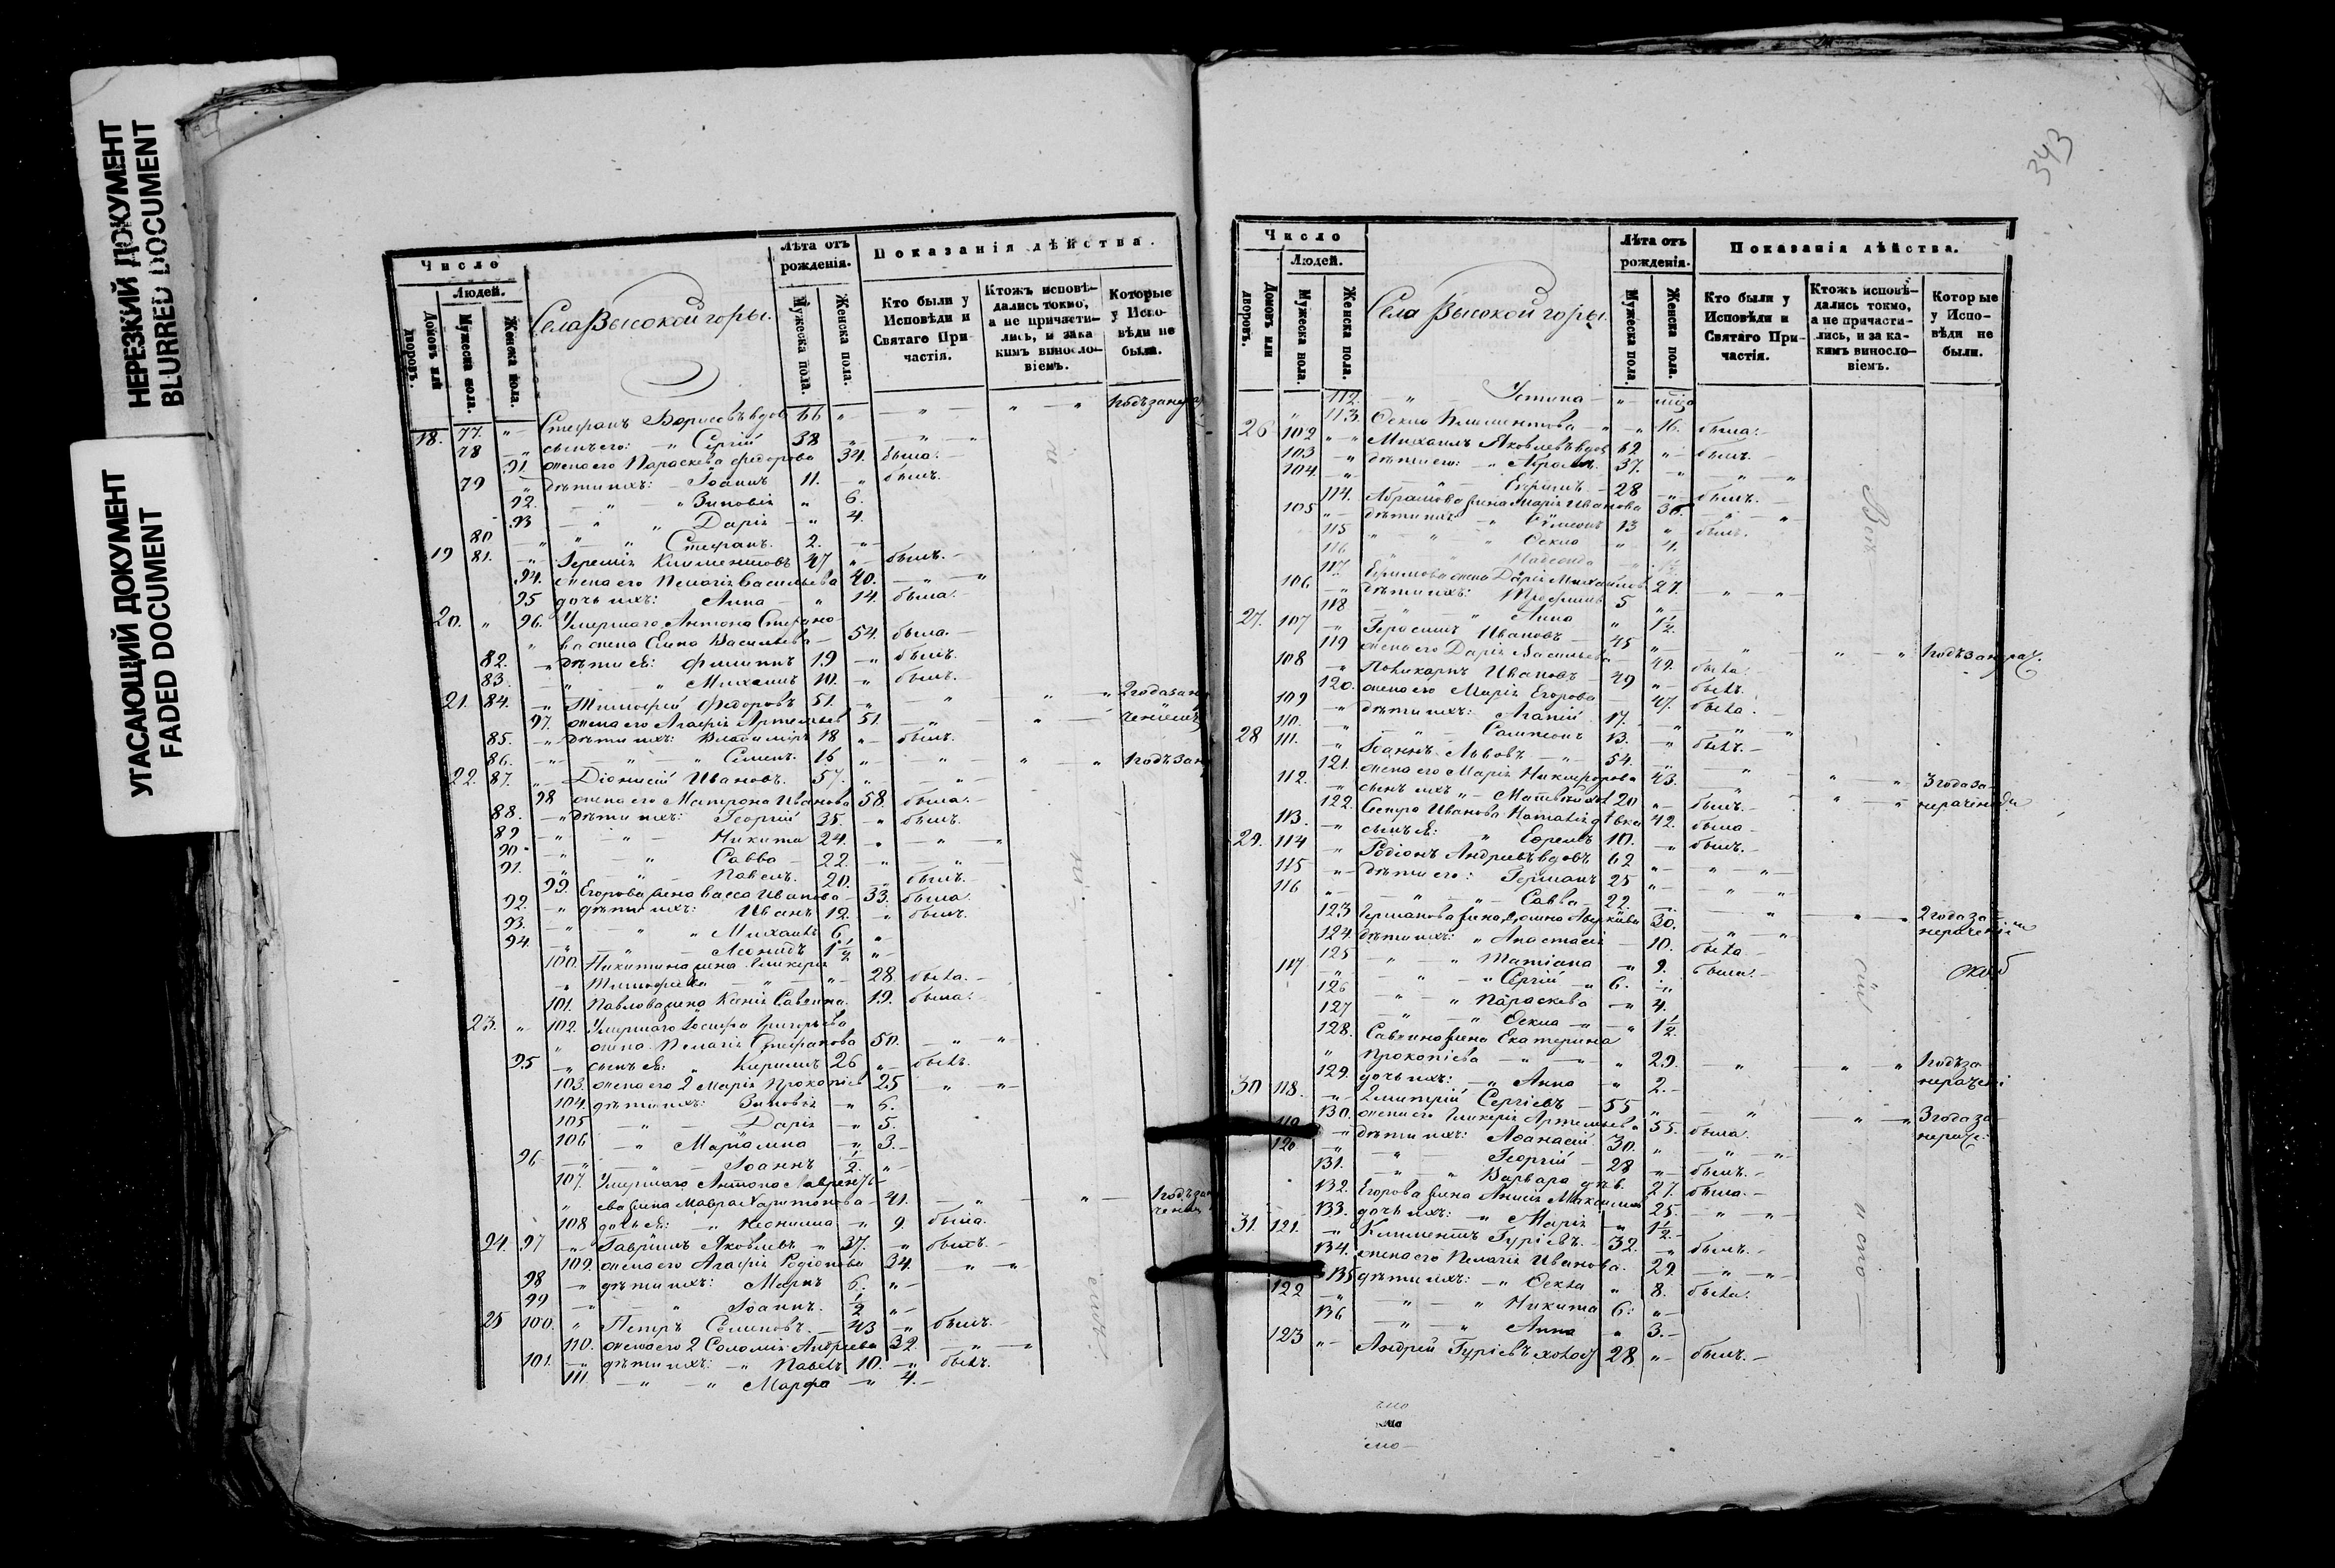 НЕРЕЗКИЙ ДОКУМЕНТ
BLURRED DOCUMENT
УГАСАЮЩИЙ ДОКУМЕНТ
FADED DOCUMENT
Число
Людей.
Домовъ или дворовъ.
Мужеска пола.
Женска пола.
Села Высокой горы.
Лѣта отъ рожденія.
Мужеска пола.
Женска пола.
Показанія дѣйства.
Кто были у Исповѣди и Святаго Причастія.
Ктожъ исповѣдались токмо, а не причастились, и зака кимъ винословіемъ.
Которые у Исповѣди не были.
18. 77. " Стефанъ Борисовъ вдов 66 " — " — " — " 1 годъ за
78 " сынъ его: " Сергій 38 " — " — "
91. жена его Параскева Федорова 34. была.
79 " дѣти ихъ: Іоаннъ 11. " былъ.
92. — " — " Зиновія " 6.
93 — " " Дарія — " 4.
80 " — " " Стефанъ. 2. "
19 81. " Іеремія Климентовъ 47 " былъ.
94. жена его Пелагія Васильева 40. — " — "
95 дочь ихъ: Анна — " 14. была.
20. " 96. Умершаго Антона Стефано-
" ва жена Васильева — 54. была.
82. " дѣти ея: Филиппъ 19 " былъ.
83. — " — " Михаилъ 10. " былъ.
21. 84. " Тимофей Федоровъ 51. " — " — " — " 2 года за
97. жена его Агафія Артемьев 51. — " — "
85. " дѣти ихъ: Владиміръ 18 " былъ.
86. — " — " Семенъ. 16 " — " — " — " 1 годъ за
22. 87. " Діонисій Ивановъ. 57. " — "
98 жена его Матрона Иванова 58. была.
88. " дѣти ихъ: Георгій 35. " былъ.
89 — " — " Никита 24. " — " — "
90. — " — " Савва — 22. " — " — "
91. — " — " Павелъ. 20. " былъ.
99. Егорова жена Васса Иванова 33. была.
92. " дѣти ихъ: Иванъ 12. " былъ.
93. — " — " Михаилъ 6. "
94. — " — " Леонидъ 1½ "
100. Никитина жена Гликерія
" Тимофеева — " — " 28. была.
101. Павлова жена Ксенія Саввина. 19. была.
23. " 102. Умершаго Іосифа Григорьева
" жена Пелагія Стефанова 50. — " — "
95 " сынъ ея: " Кириллъ 26 " былъ.
103. жена его 2 Марія Прокопіев 25 — " — "
104. дѣти ихъ: Зиновія — " 6.
105 — " — Дарія — " 5.
106 — " Маріамна — " 3.
96 — " — " Іоаннъ ½. "
107. Умершаго Антона Лаврентье-
" ева жена Мавра Харитонова 41. — " — " — 1 годъ за
108 дочь ея: " Неонилла — " 9. была.
24. 97 " Гавріилъ Яковлевъ " 37. " былъ.
109. жена его Агафія Родіонова 34. — " — "
98 " дѣти ихъ: Маркъ 6. "
99 — " — " Іоаннъ. ½ "
25 100. " Петръ Семеновъ. — 43 " былъ.
110. жена его 2 Соломія Андреева 32. — " —
101. " дѣти ихъ: " Павелъ 10. " былъ.
111. — " — " Марфа — " 4.
343
Число
Людей.
Домовъ или дворовъ.
Мужеска пола.
Женска пола.
Села Высокой горы.
Лѣта отъ рожденія.
Мужеска пола.
Женска пола.
Показанія дѣйства.
Кто были у Исповѣди и Святаго Причастія.
Ктожъ исповѣдались токмо, а не причастились, и за какимъ винословіемъ.
Которые у Исповѣди не были.
112. — " — Устина — "
" 113. Фекла Климентова " " 16. была.
26 102 " Михаилъ Яковлевъ вдов 62 " былъ.
103 " дѣти его: " Абрамъ. 37. " — " — "
104. " — " — Ефимъ — 28 " былъ.
114. Абрамова жена Марія Иванова 36. — " — "
105 " дѣти ихъ " Симеонъ 13 " былъ.
115 " " " Фекла " 4.
116
117. Ефимова жена Дарія Михайлов 27. — " — "
106 " дѣти ихъ: Трофимъ 5 "
118 " " Анна " 1½.
27. 107 " Герасимъ Ивановъ — 45 " — " — " — " 1 годъ за нерач.
119 жена его Дарія Васильева 49. была.
108 " Поликарпъ Ивановъ 49 " былъ.
120. жена его Марія Егорова 47. была.
109 " дѣти ихъ: Агапій 17. " — " — "
110. " — " Сампсонъ 13. " былъ.
28 111. " Іоаннъ Львовъ — " 54. — " — " — " 3 года за
121. жена его Марія Никифорова 43. — " — " нераченіемъ
112. " сынъ ихъ " Матвѣй 20 " былъ.
122. Сестра Иванова Наталія дѣвка 42. была.
113. " сынъ ея: " Ефремъ 10. " былъ.
29. 114 " Родіонъ Андреевъ вдовъ 62 " — " — "
115 " дѣти его: Германъ 25 " — " — "
116 " — " — Савва 22. — " — " — " 2 года за
123 Германова жена Аверкіева 30. — " — " нераченіемъ
124. дѣти ихъ: " Анастасія — 10. была.
125 — " — " Татіана " 9. была.
117 — " — " Сергій " 6. "
126 — " — " Параскева " 4.
127 — " — " Фекла " 1½.
128. Саввина жена Екатерина
" Прокопіева — " — " 29. — " — " — " 1 годъ за
129. дочь ихъ: " Анна " 2. нерачені
30 118. " Димитрій Сергіевъ 55 " — " — " — " 3 года за
130. жена его Гликерія Артемьева 55. была. нерач.
119 " дѣти ихъ: Аѳанасій 30. " — " — "
120 — " — " Георгій 28 " былъ.
131. " Варвара дѣв. 27. была.
132. Егорова жена Анисія Максимов 25. — " — "
133. дочь ихъ: " Марія " 1½.
31. 121. " Климентъ Гуріевъ. 32. " былъ.
134. жена его Пелагія Иванова. 29. — " — "
135 дѣти ихъ: " Фекла " 8. была.
122 " — " — " Никита 6. "
136 — " — " Анна " 3.
123 " Андрей Гуріевъ холос 28 " былъ.